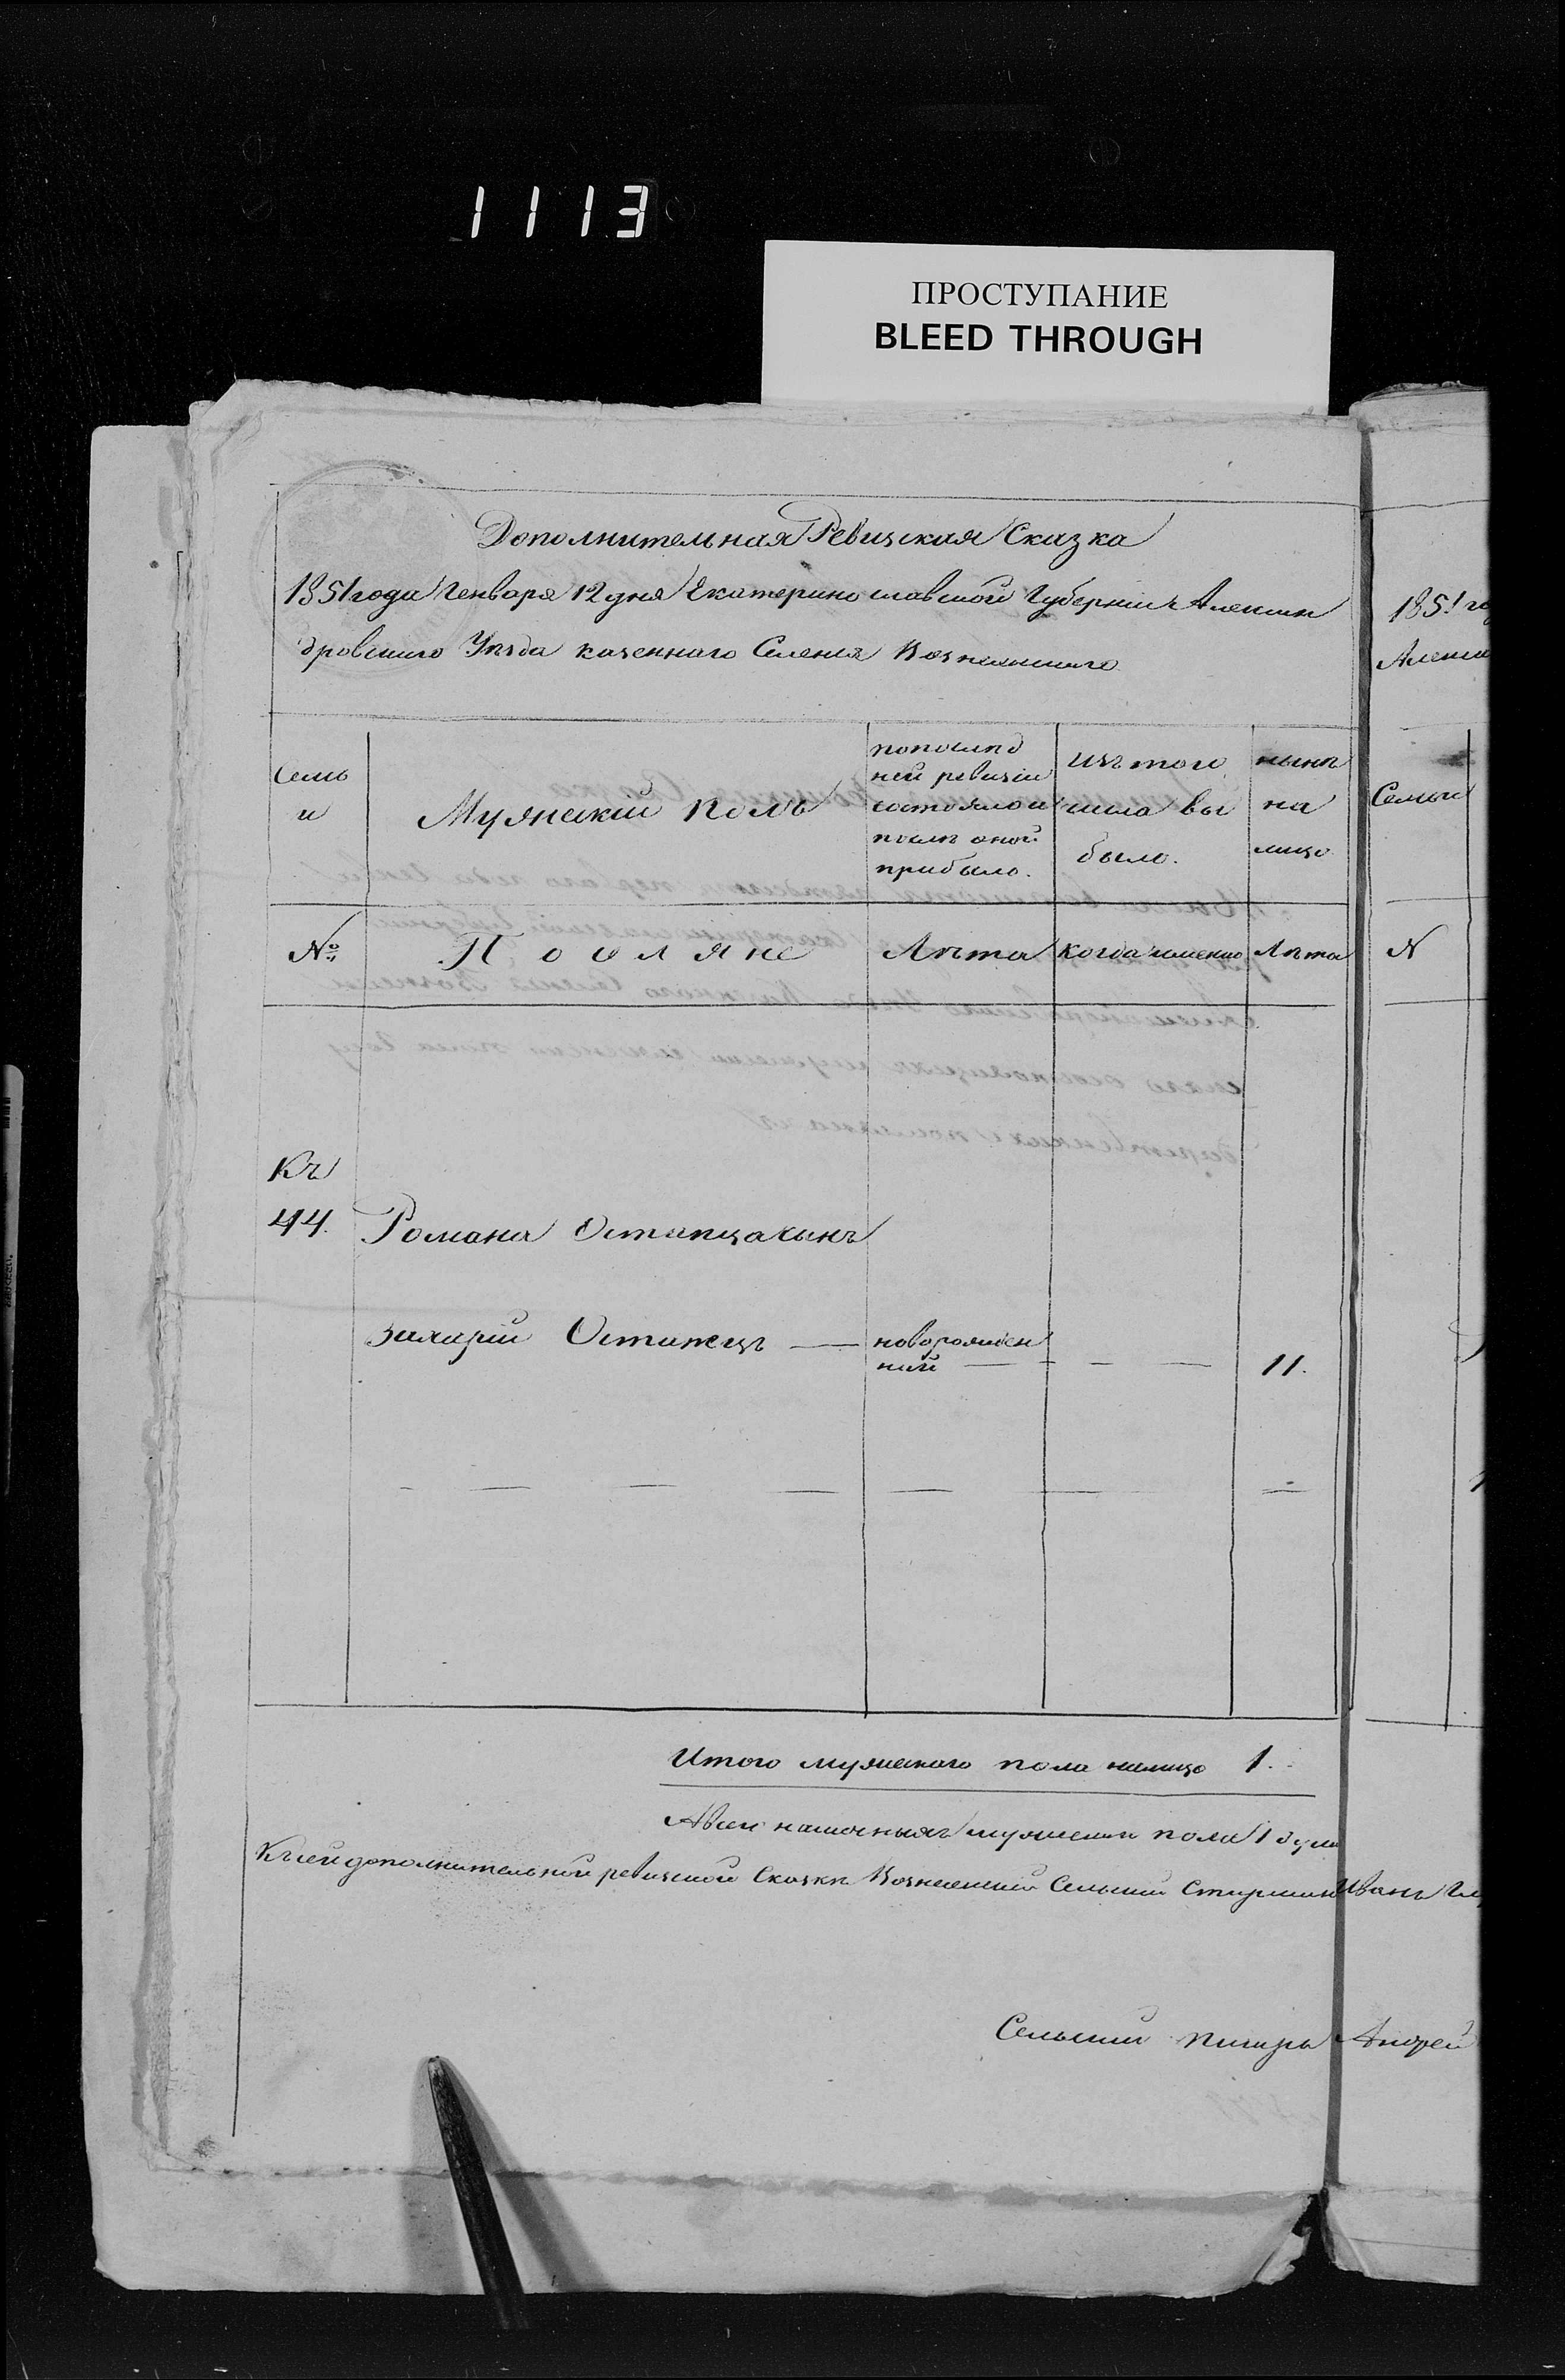 1113
ПРОСТУПАНИЕ
BLEED THROUGH
Дополнительная Ревизская Сказка
1851 года Генваря 12 дня Екатеринославской Губернии Алексан
дровского Уѣзда казенного Селенія Вознесенского
185! го
Алекса
Семь
и
Мужескій полъ
попослѣд
ней ревизіи
состояло и
послѣ оной
прибыло.
изъ того
числа вы
было.
нынѣ
на
лицо
Семьи
№
Поселяне
Лѣта
когда именно
Лѣта
N
Къ
44.
Романа Остапца сынъ
Захарій Остапецъ — новорожден
ний — — — 11.
Итого мужеского пола налицо 1.
А всех наличныхъ мужеска пола 1 душа
Къ сей дополнительной ревизской Сказкѣ Вознесенскій Сельскій Старшина Иванъ
Сельскій писарь Андрей